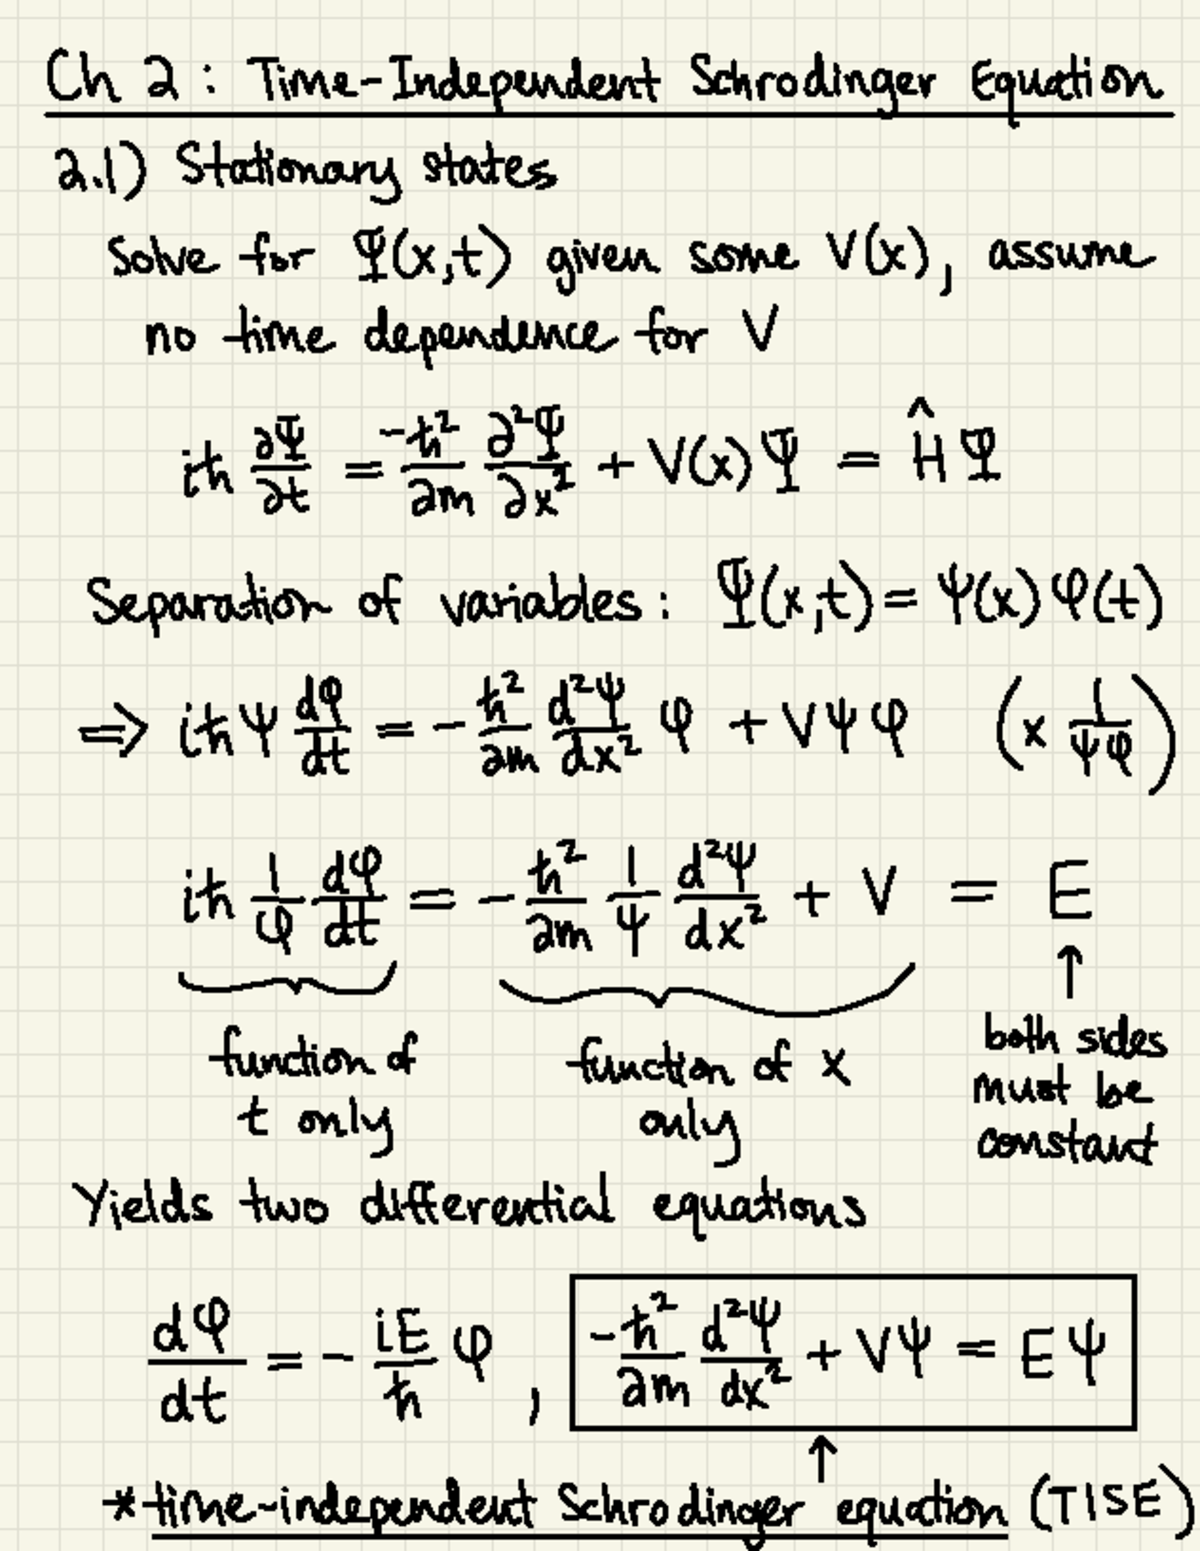 Ch 2 : Time-Independent Schrodinger Equation
2.1) Stationary states
Solve for Ψ(x,t) given some V(x), assume
no time dependence for V
iħ ∂Ψ/∂t = -ħ²/2m ∂²Ψ/∂x² + V(x)Ψ = ĤΨ
Separation of variables : Ψ(x,t) = ψ(x)φ(t)
⇒ iħψ dφ/dt = - ħ²/2m d²ψ/dx² φ + Vψφ (x 1/ψφ)
iħ 1/φ dφ/dt = - ħ²/2m 1/ψ d²ψ/dx² + V = E
↑
function of t only
function of x only
both sides must be constant
Yields two differential equations
dφ/dt = - iE/ħ φ , -ħ²/2m d²ψ/dx² + Vψ = Eψ
↑
* time-independent Schrodinger equation (TISE)